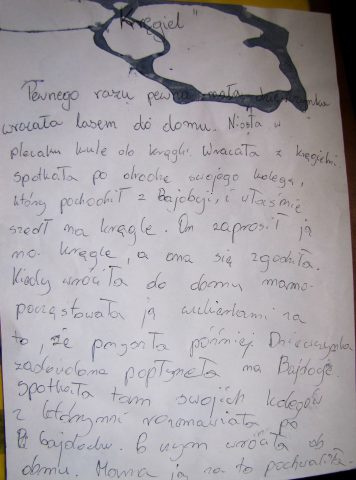 "Kręgiel"
Pewnego razu pewna mała dziewczynka
wracała lasem do domu. Niosła w
plecaku kule do kręgli. Wracała z kręgielni
spotkała po drodze swojego kolegę,
który pochodził z Bajdogji, i właśnie
szedł na kręgle. On zaprosił ją
na kręgle, a ona się zgodziła.
Kiedy wróciła do domu mama
poczęstowała ją cukierkami za
to, że przyszła później Dziewczynka
zadowolona popłynęła na Bajdogje.
Spotkała tam swoich kolegów
z którymi rozmawiała po
Bajdodu. wróciła do
domu. Mama ją za to pochwaliła.